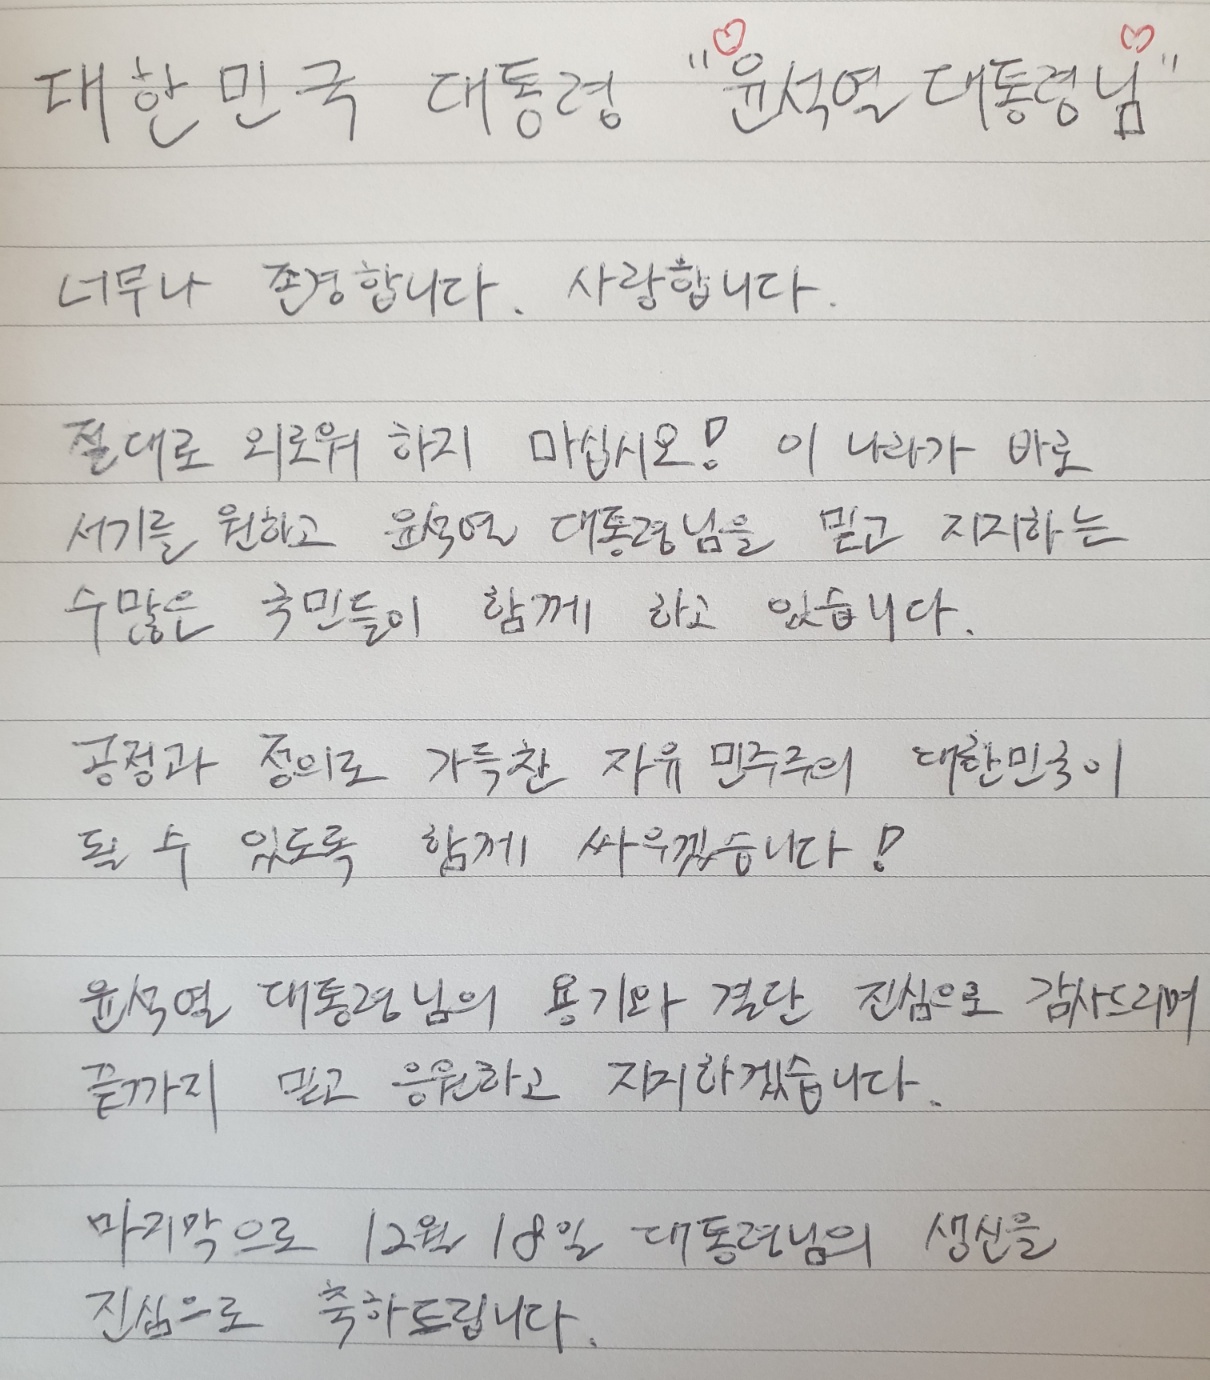 대한민국 대통령 "윤석열 대통령님"
너무나 존경합니다. 사랑합니다.
절대로 외로워 하지 마십시오! 이 나라가 바로
서기를 원하고 윤석열 대통령님을 믿고 지지하는
수많은 국민들이 함께 하고 있습니다.
공정과 정의로 가득찬 자유 민주주의 대한민국이
될 수 있도록 함께 싸우겠습니다!
윤석열 대통령님의 용기와 결단 진심으로 감사드리며
끝까지 믿고 응원하고 지지하겠습니다.
마지막으로 12월 18일 대통령님의 생신을
진심으로 축하드립니다.